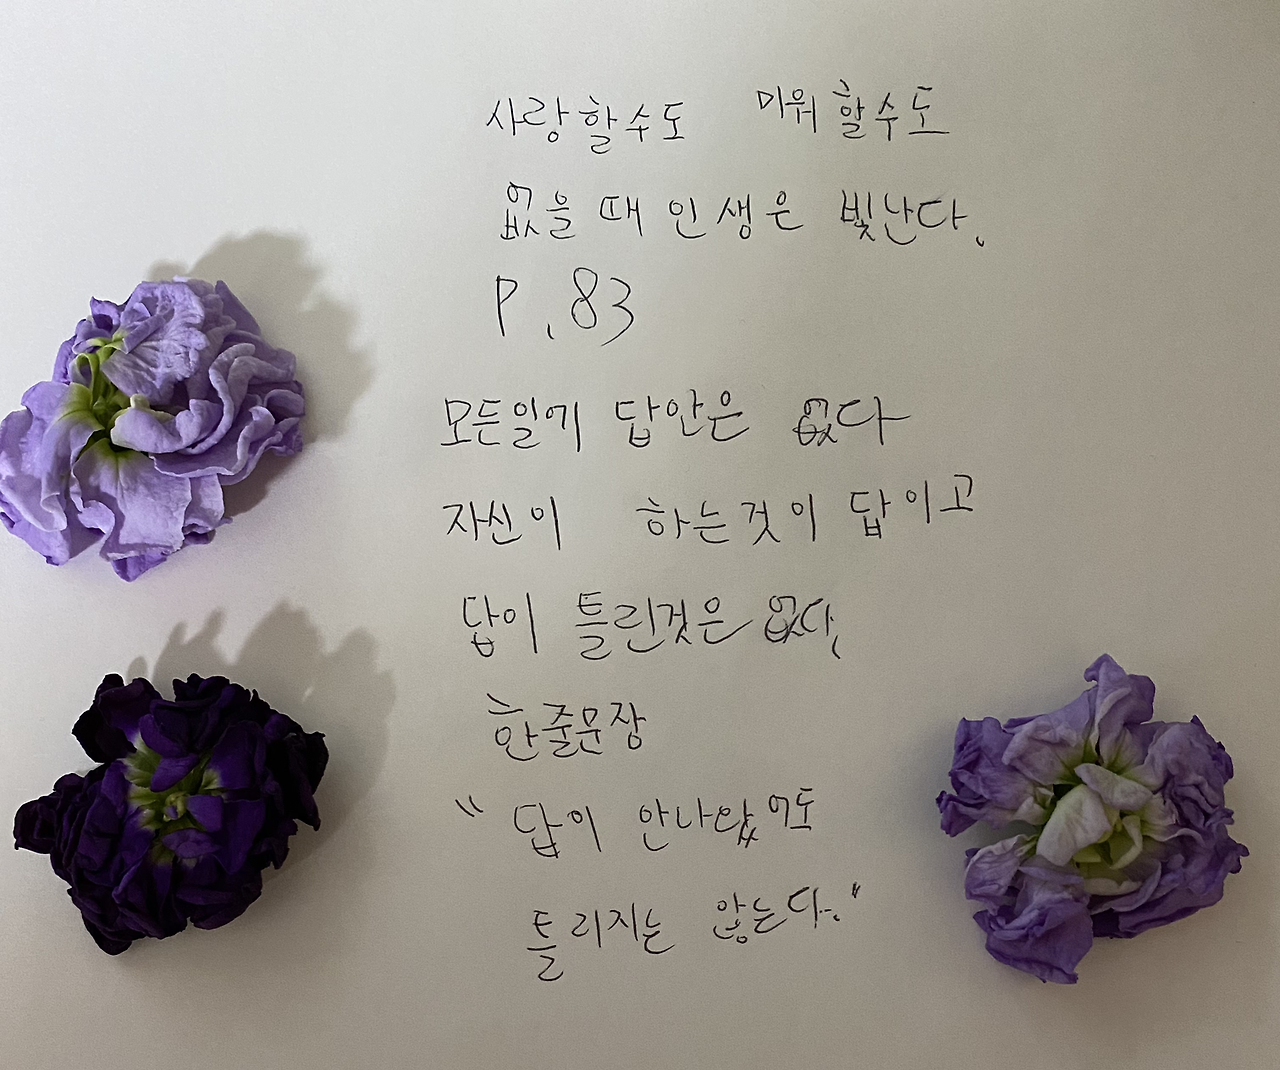 사랑할수도 미워할수도
없을때 인생은 빛난다.
P.83
모든일에 답안은 없다
자신이 하는것이 답이고
답이 틀린것은 없다.
한줄문장
"답이 안나왔어도
틀리지는 않는다."